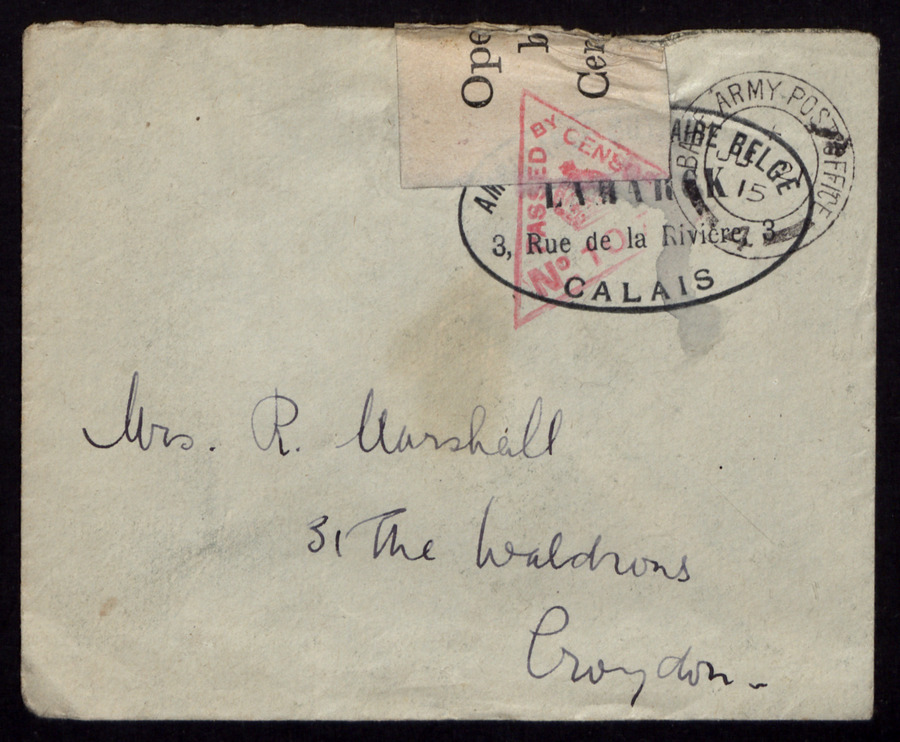 Ope
b
Cen
PASSED BY CENSOR
No
ARMY POST OFFICE
15
7
AIRE BELGE
3, Rue de la Rivière, 3
CALAIS
Mrs. R. Marshall
31 The Waldrons
Croydon -